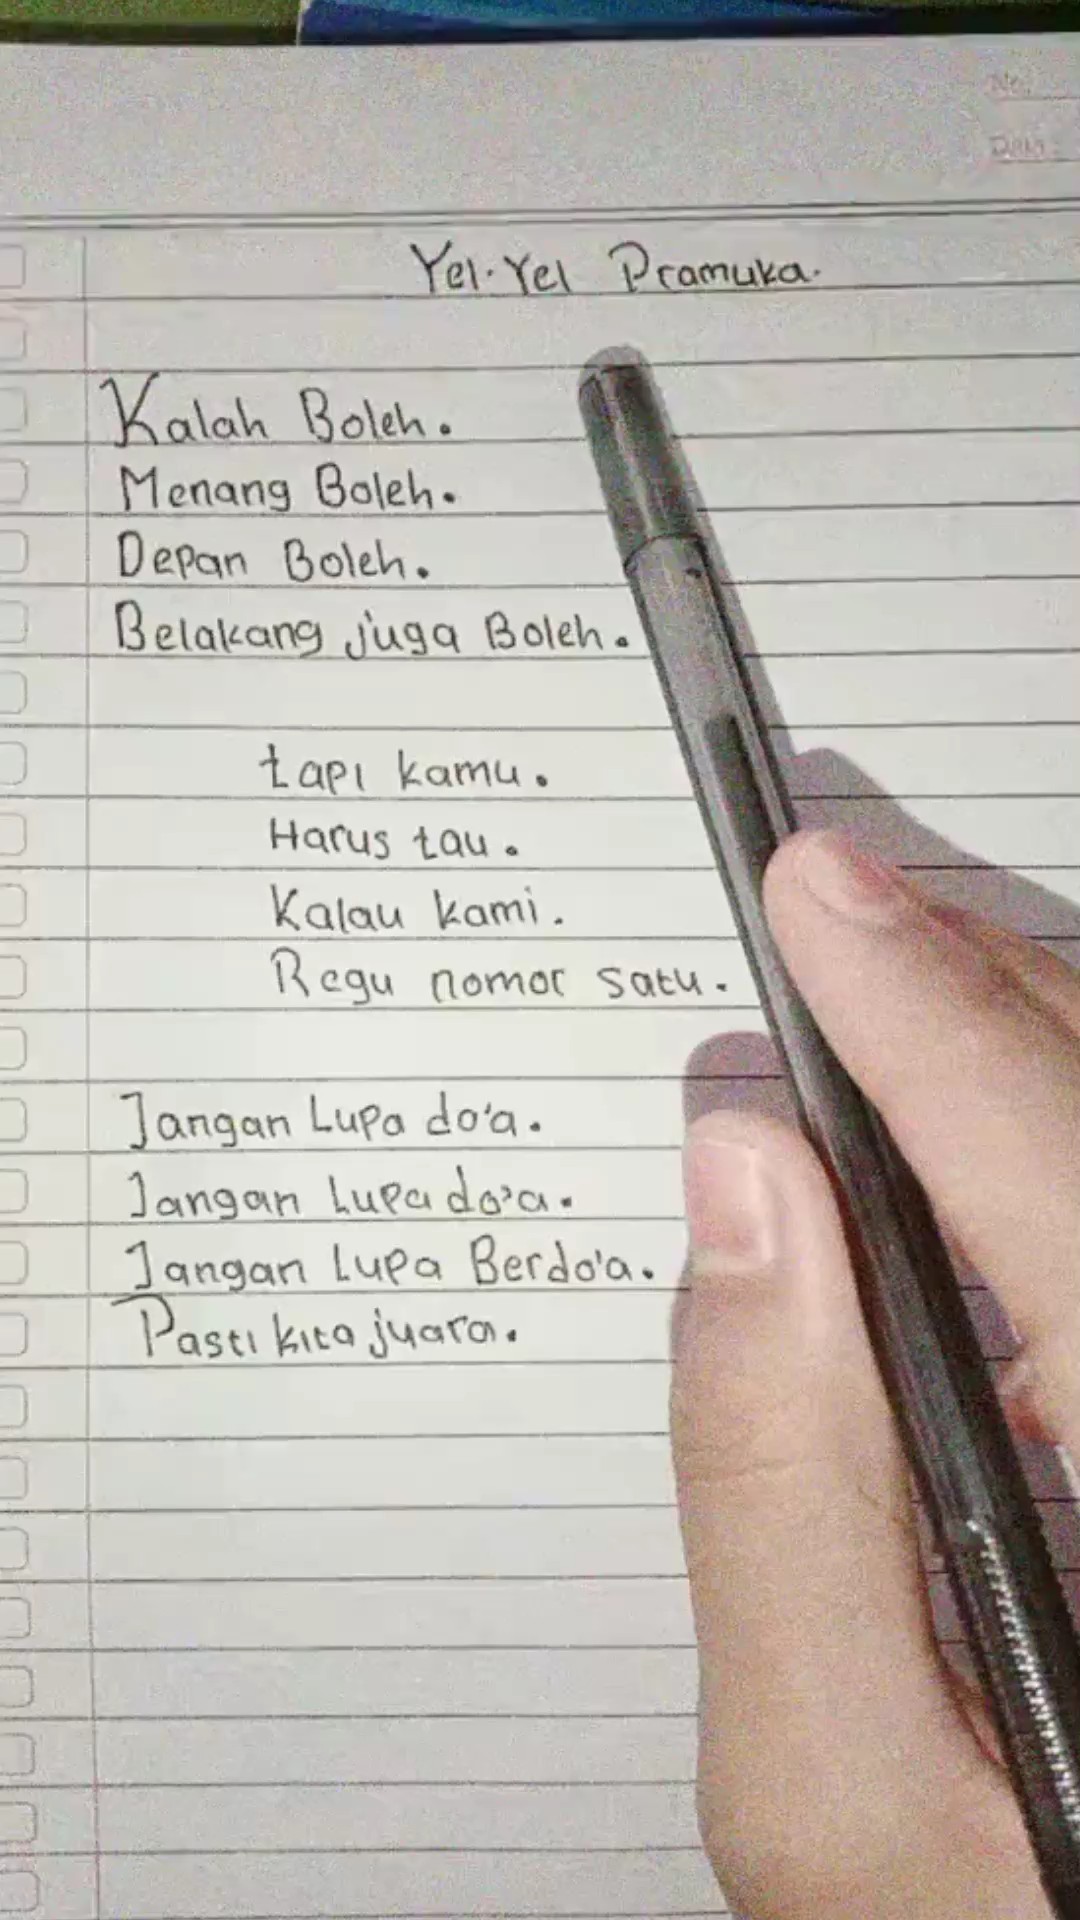 No:
Date:
Yel-Yel Pramuka.
Kalah Boleh.
Menang Boleh.
Depan Boleh.
Belakang juga Boleh.
tapi kamu.
Harus tau.
Kalau kami.
Regu nomor satu.
Jangan Lupa do'a.
Jangan Lupa do'a.
Jangan Lupa Berdo'a.
Pasti kita juara.